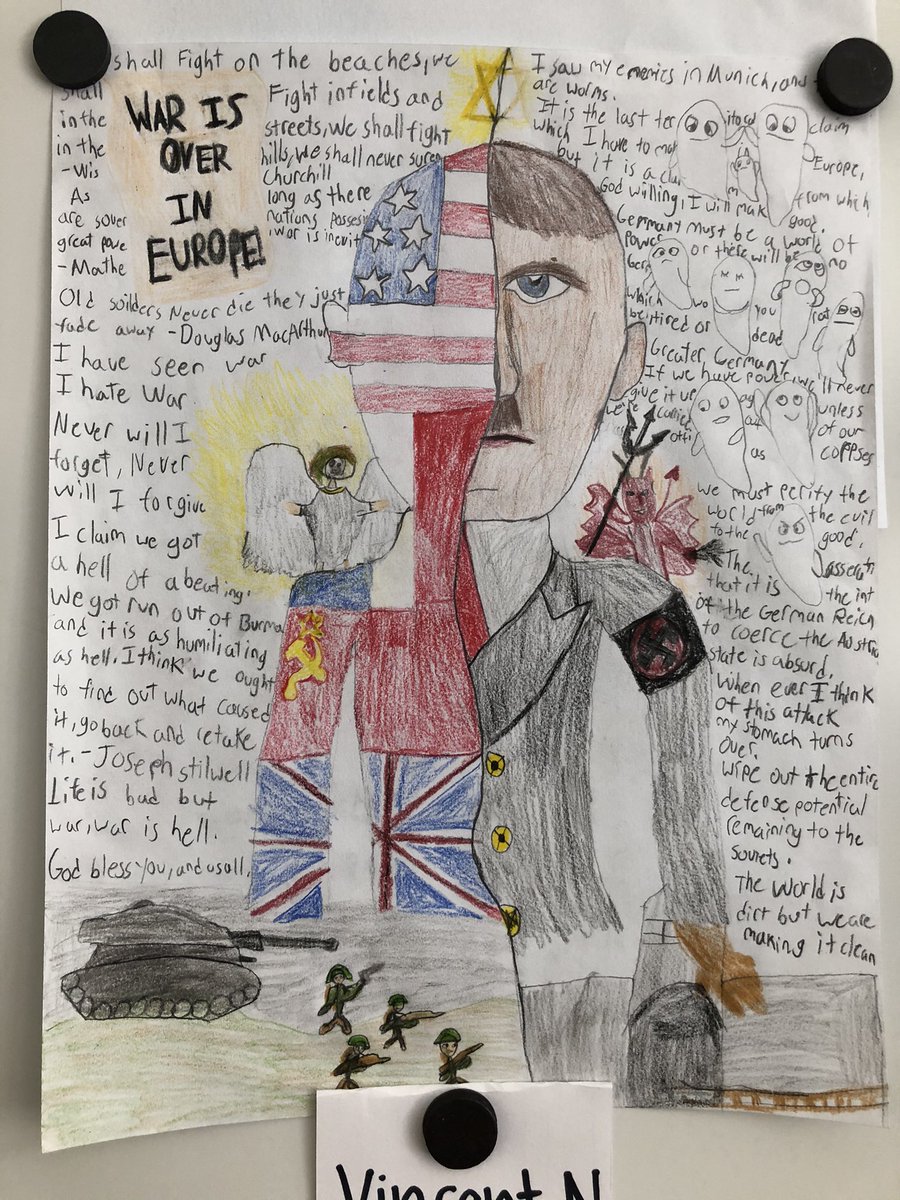 shall Fight on the beaches, we
shall Fight in fields and
in the streets, we shall fight
in the hills, we shall never suren
-Wis Churchill
As long as there
are sover nations Posess
great powe war is inevit
-Mathe
WAR IS
OVER
IN
EUROPE!
Old soilders Never die they just
fade away -Douglas MacArthur
I have seen war
I hate War
Never will I
forget, Never
will I forgive
I claim we got
a hell of a beating.
We got run out of Burma
and it is as humiliating
as hell. I think we ought
to find out what caused
it, go back and retake
it. - Joseph stilwell
Life is bad but
war, war is hell.
God bless you, and us all.
I saw my enemies in Munich, and
are worms.
It is the last ter ito claim
which I have to mak Europe,
but it is a cla from which
God willing, I will mak good.
Germany must be a world of
Power or there will be no
Ger
which wo you rat
be tired or dead
Greater, Germany
If we have power, we'll never
give it up unless
we're carrie of our
as corpses
we must perify the
world from the evil
to the good.
The asserti
that it is the int
of the German Reich
to coerce the Austria
state is absurd.
When ever I think
of this attack
my stomach turns
over.
Wipe out the entire
defense potential
remaining to the
soviets.
The world is
dirt but we are
making it clean
Vincent N